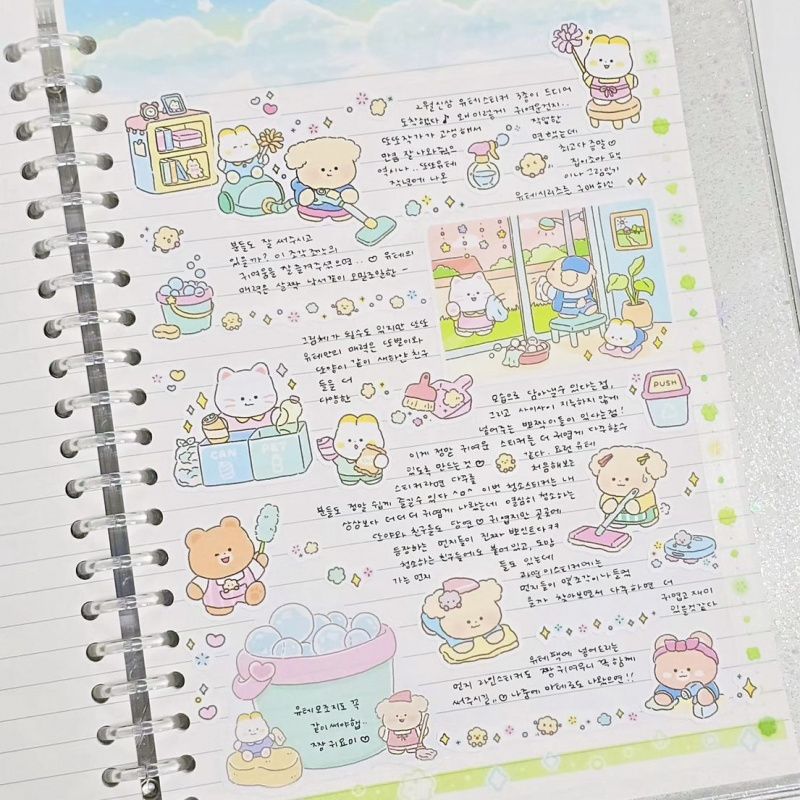 2월인상 유테스티커 3종이 드디어
도착했다♪ 왜 이렇게 귀여운건지..
또또작가가 고생해서 작업한
만큼 잘 나와죽은 면했는데
역시나.. 또또유테 최고다증말♡
작년에 나온 집이조아 팩
이나 그림일기
유테시리즈를 구매하신
분들도 잘 써주시고
있을까? 이 조각조각의
귀여움을 잘 즐겨주셨으면..♡ 유테의
매력은 살짝 낯서님이 오밀조밀한-
그림체가 될수도 있지만 또또
유테만의 매력은 또별이와
또양이 같이 새하얀 친구
들을 더
다양한
모습으로 담아낼수 있다는점,
그리고 사이사이 지루하지 않게
넣어주는 빤짝이들이 있다는점!
이게 정말 귀여운 스티커를 더 귀엽게 다꾸할수
있도록 만드는 것♡ 같다. 요런 유테
스티커라면 다꾸를 처음해보는
분들도 정말 쉽게 즐길수 있다 ^o^ 이번 청소스티커는 내
상상보다 더더더 귀엽게 나왔는데 열심히 청소하는
또야와 친구들도 당연♡귀엽지만 곳곳에
등장하는 먼지들이 진짜 뽀인트다ㅋㅋ
청소하는 친구들에도 붙어있고, 도망
가는 먼지 들도 있는데
라인이스티커에는
먼지들이 몇조각이나 들었
을까 찾아보면서 다꾸하면 더
귀엽고 재미
있을것같다
유테팩에 넣어드리는
먼지 라인스티커도 짱 귀여우니 꼭 함께
써주시길..♡ 나중에 마테로도 나왔으면!!
유테모조지도 꼭
같이써야햅..
짱 귀요미♡
CAN
PET
PUSH